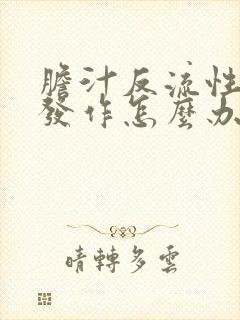 膽汁反流性
發作怎麼办
晴轉多雲